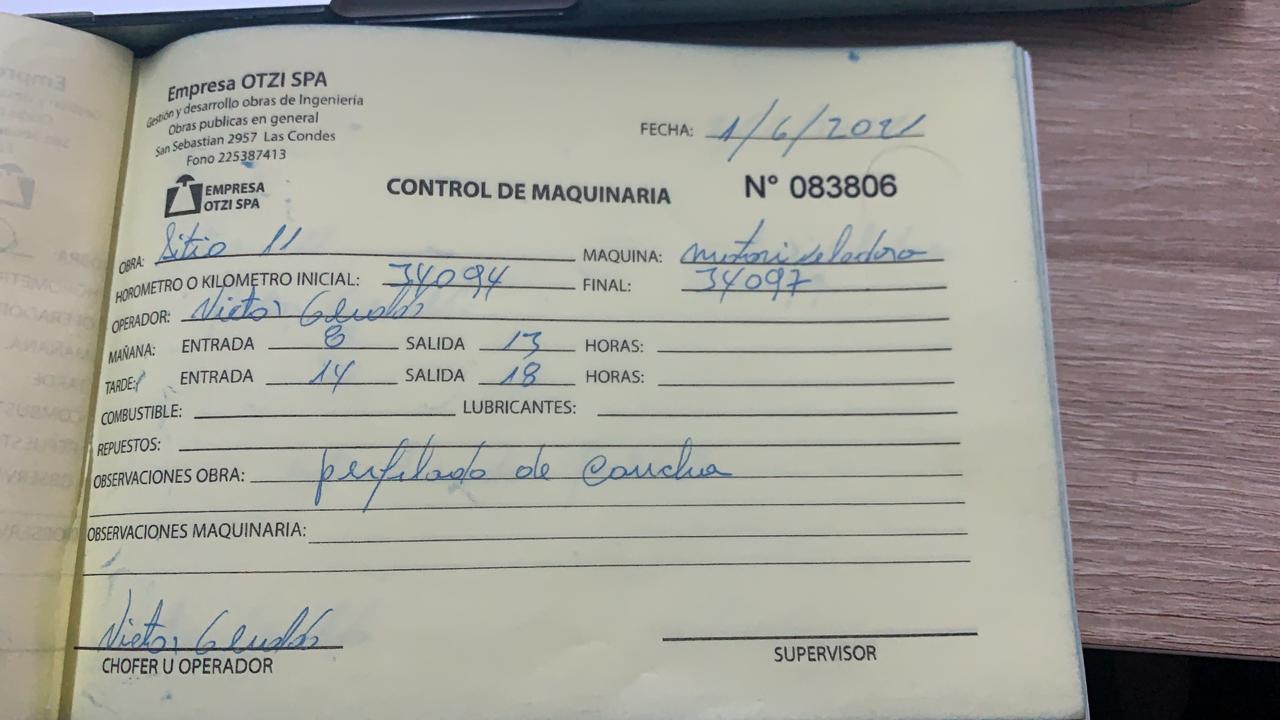 Empresa OTZI SPA
Gestión y desarrollo obras de Ingeniería
Obras publicas en general
San Sebastian 2957 Las Condes
Fono 225387413
FECHA: 1/6/2021
EMPRESA
OTZI SPA
CONTROL DE MAQUINARIA
N° 083806
OBRA: Sitio 11 MAQUINA: motoniveladora
HOROMETRO O KILOMETRO INICIAL: 34094 FINAL: 34097
OPERADOR: Victor
MAÑANA: ENTRADA 8 SALIDA 13 HORAS:
TARDE: ENTRADA 14 SALIDA 18 HORAS:
COMBUSTIBLE: LUBRICANTES:
REPUESTOS:
OBSERVACIONES OBRA: perfilado de cancha
OBSERVACIONES MAQUINARIA:
Victor
CHOFER U OPERADOR
SUPERVISOR